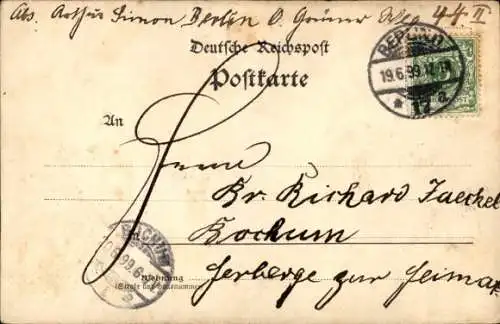 Abs. Arthur Simon Berlin O. Grüner Weg 44 II
Deutsche Reichspost
Postkarte
BERLIN O
19.6.99.12-1N
* 17 a.
An
Herrn
Br. Richard Jaeckel
in
Bochum
BOCHUM
6.99.6
Herberge zur Heimat
Wohnung
(Straße und Hausnummer)